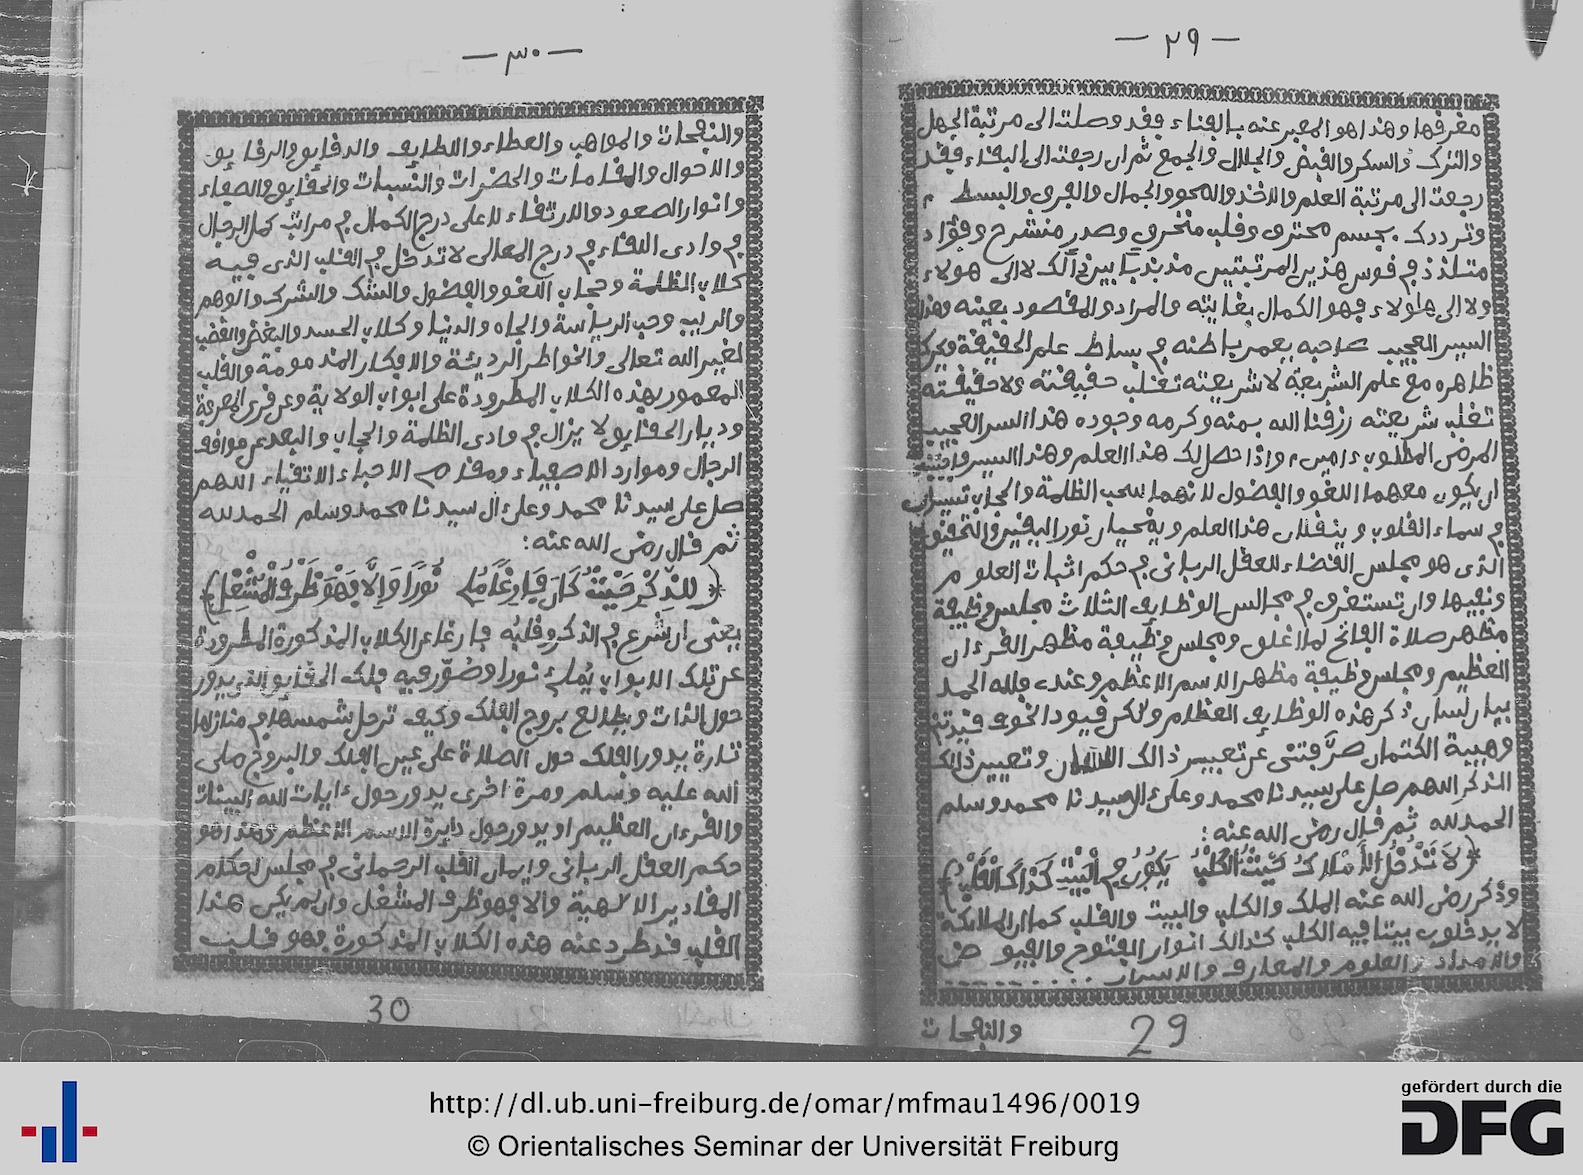 — ٢٩ —
معرفها وهذا هو المعبر عنه بالفناء فقد وصلت الى مرتبة الجهل
والترك والسكر والقبض والجلال والجمع ثم ان رجعت الى البقاء فقد
رجعت الى مرتبة العلم والاخذ والصحو والجمال والفرق والبسط
وتردد ك بجسم محترق وقلب منخرق وصدر منشرح وفؤاد
متلذذ في قوس هذين المرتبتين مذبذبا بين ذالك لا الى هولاء
ولا الى هاولاء فهو الكمال بغايته والمراد والمقصود بعينه وهذا
السير العجيب صاحبه يعمر باطنه في بساط علم الحقيقة ويحرك
ظاهره مع علم الشريعة لا شريعته تغلب حقيقته ولا حقيقته
تغلب شريعته رزقنا الله بمنه وكرمه وجوده هذا السر العجيب
المرض المطلوب ءامين واذا حصل لك هذا العلم وهذا السير
ان يكون معهما اللغو والفضول لانهما سحب الظلمة والحجاب
في سماء القلوب وينفلان هذا العلم نور اليقين والتحقيق
الذى هو مجلس القضاء للعقل الربانى في حكم اثبات العلوم
ونفيها وان تستغرق في مجالس الوظايف الثلاث مجلس وظيفة
مظهر صلاة الفاتح لما اغلق ومجلس وظيفة مظهر القرءان
العظيم ومجلس وظيفة مظهر الاسم الاعظم وعندى فلله الحمد
بيان لسان ذكر هذه الوظايف العظام ولكن قيود الخوف قيدتنى
وهيبة الكتمان صرفتنى عن تعبير ذالك وتعيين ذالك
الذكر اللهم صل على سيدنا محمد وعلى ءال سيدنا محمد وسلم
الحمد لله ثم قال رضى الله عنه :
﴿لا تدخل الأملاك بيت الكلب يكون في البيت كذاك القلب﴾
وذكر رضى الله عنه الملك والكلب والبيت والقلب كما ان الملائكة
لا يدخلون بيتا فيه الكلب كذالك انوار الفتوح والفيوض
والامداد والعلوم والمعارف والاسرار
والنفحات
29
— ٣٠ —
والنفحات والمواهب والعطاء واللطايف والدقايق والرقايق
والاحوال والمقامات والحضرات والنسبات والحقايق والصفاء
وانوار الصعود والارتقاء لاعلى درج الكمال في مراتب كمل الرجال
في وادى اللقاء في درج المعالى لا تدخل في القلب الذى فيه
كلاب الظلمة وحجاب اللغو والفضول والشك والشرك والوهم
والريب وحب الرياسة والجاه والدنيا وكلاب الحسد والبغض والغضب
لغير الله تعالى والخواطر الرديئة والافكار المذمومة والقلب
المعمور بهذه الكلاب المطرودة على ابواب الولاية وعن قرى المعرفة
وديار الحقايق لا يزال في وادى الظلمة والحجاب والبعد عن مواقف
الرجال وموارد الاصفياء ومقام الاحباء الاتقياء اللهم
صل على سيدنا محمد وعلى ءال سيدنا محمد وسلم الحمد لله
ثم قال رضى الله عنه :
﴿للذكر حيث كان فارغا ملى نورا والا فهو ظرف المشغل﴾
يعنى ان شرع في الذكر وقلبه فارغا عن الكلاب المذكورة المطرودة
عن تلك الابواب يملئ نورا وصور فيه فلك الحقايق الذى يدور
حول الذات ويطالع بروج الفلك وكيف ترحل شمسها في منازلها
تارة يدور الفلك حول الصلاة على عين الفلك والبروج صلى
الله عليه وسلم ومرة اخرى يدور حول ءايات الله البينات
والقرءان العظيم او يدور حول دايرة الاسم الاعظم وهذا هو
حكم العقل الربانى وايمان القلب الرحمانى في مجلس احكام
المقادير الالهية والا فهو ظرف المشغل وان لم يكن هذا
القلب قد طرد عنه هذه الكلاب المذكورة فهو قلب
30
http://dl.ub.uni-freiburg.de/omar/mfmau1496/0019
© Orientalisches Seminar der Universität Freiburg
gefördert durch die
DFG